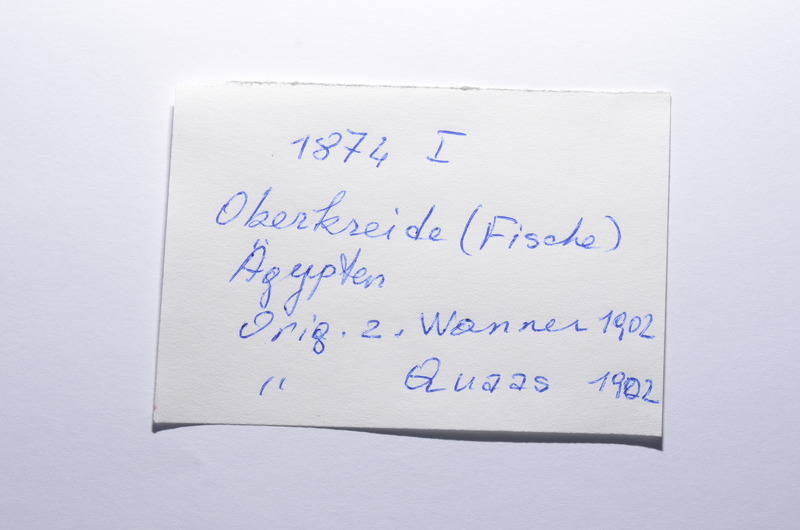 1874 I
Oberkreide (Fische)
Ägypten
Orig. z. Wanner 1902
" Quaas 1902